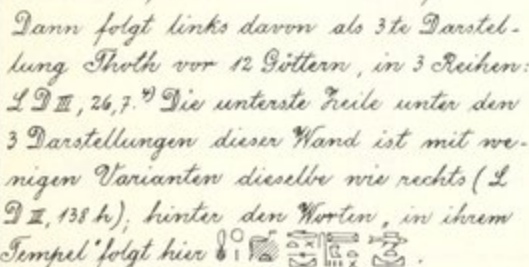 Dann folgt links davon als 3te Darstel-
lung Thoth vor 12 Göttern, in 3 Reihen:
L D III, 26, 7. 4) Die unterste Zeile unter den
3 Darstellungen dieser Wand ist mit we-
nigen Varianten dieselbe wie rechts (L
D III, 138 h); hinter den Worten „in ihrem
Tempel" folgt hier